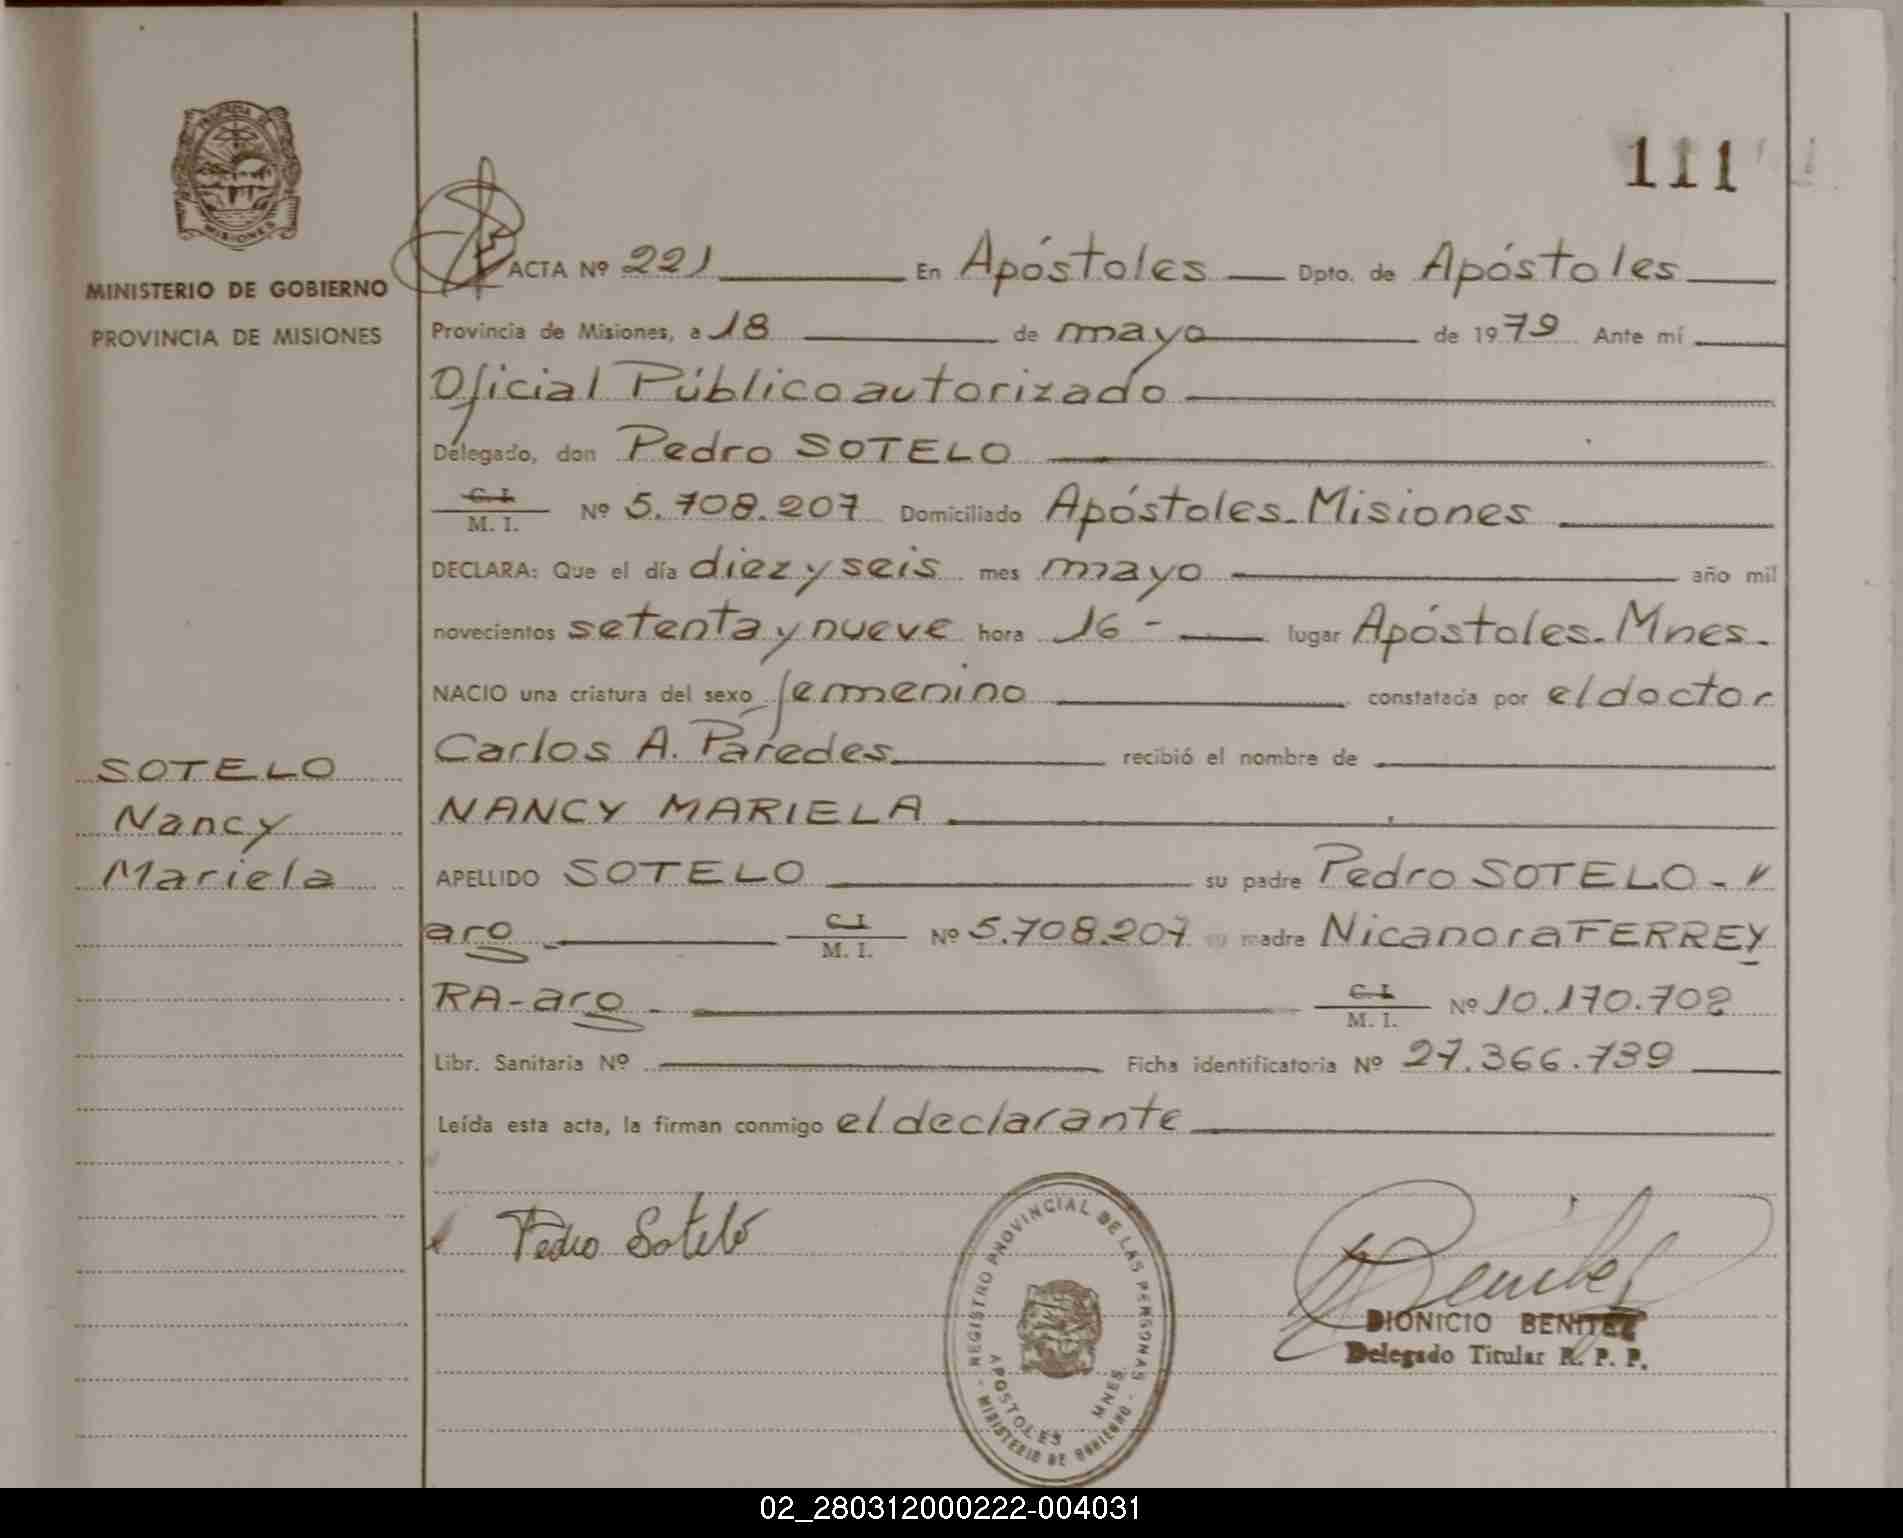 111
MINISTERIO DE GOBIERNO
PROVINCIA DE MISIONES
SOTELO
Nancy
Mariela
ACTA Nº 221 En Apóstoles Dpto. de Apóstoles
Provincia de Misiones, a 18 de mayo de 1979 Ante mí
Oficial Público autorizado
Delegado, don Pedro SOTELO
C. I.
M. I. Nº 5.708.207 Domiciliado Apóstoles-Misiones
DECLARA: Que el día diez y seis mes mayo año mil
novecientos setenta y nueve hora 16- lugar Apóstoles-Mnes.
NACIO una criatura del sexo femenino constatada por el doctor
Carlos A. Paredes recibió el nombre de
NANCY MARIELA
APELLIDO SOTELO su padre Pedro SOTELO-
aro C. I.
M. I. Nº 5.708.207 su madre Nicanora FERREY
RA-aro- C. I.
M. I. Nº 10.170.702
Libr. Sanitaria Nº Ficha identificatoria Nº 27.366.739
Leída esta acta, la firman conmigo el declarante
Pedro Sotelo
REGISTRO PROVINCIAL DE LAS PERSONAS
APOSTOLES MNES.
- MINISTERIO DE GOBIERNO -
Benitez
DIONICIO BENITEZ
Delegado Titular R. P. P.
MISIONES
02_280312000222-004031